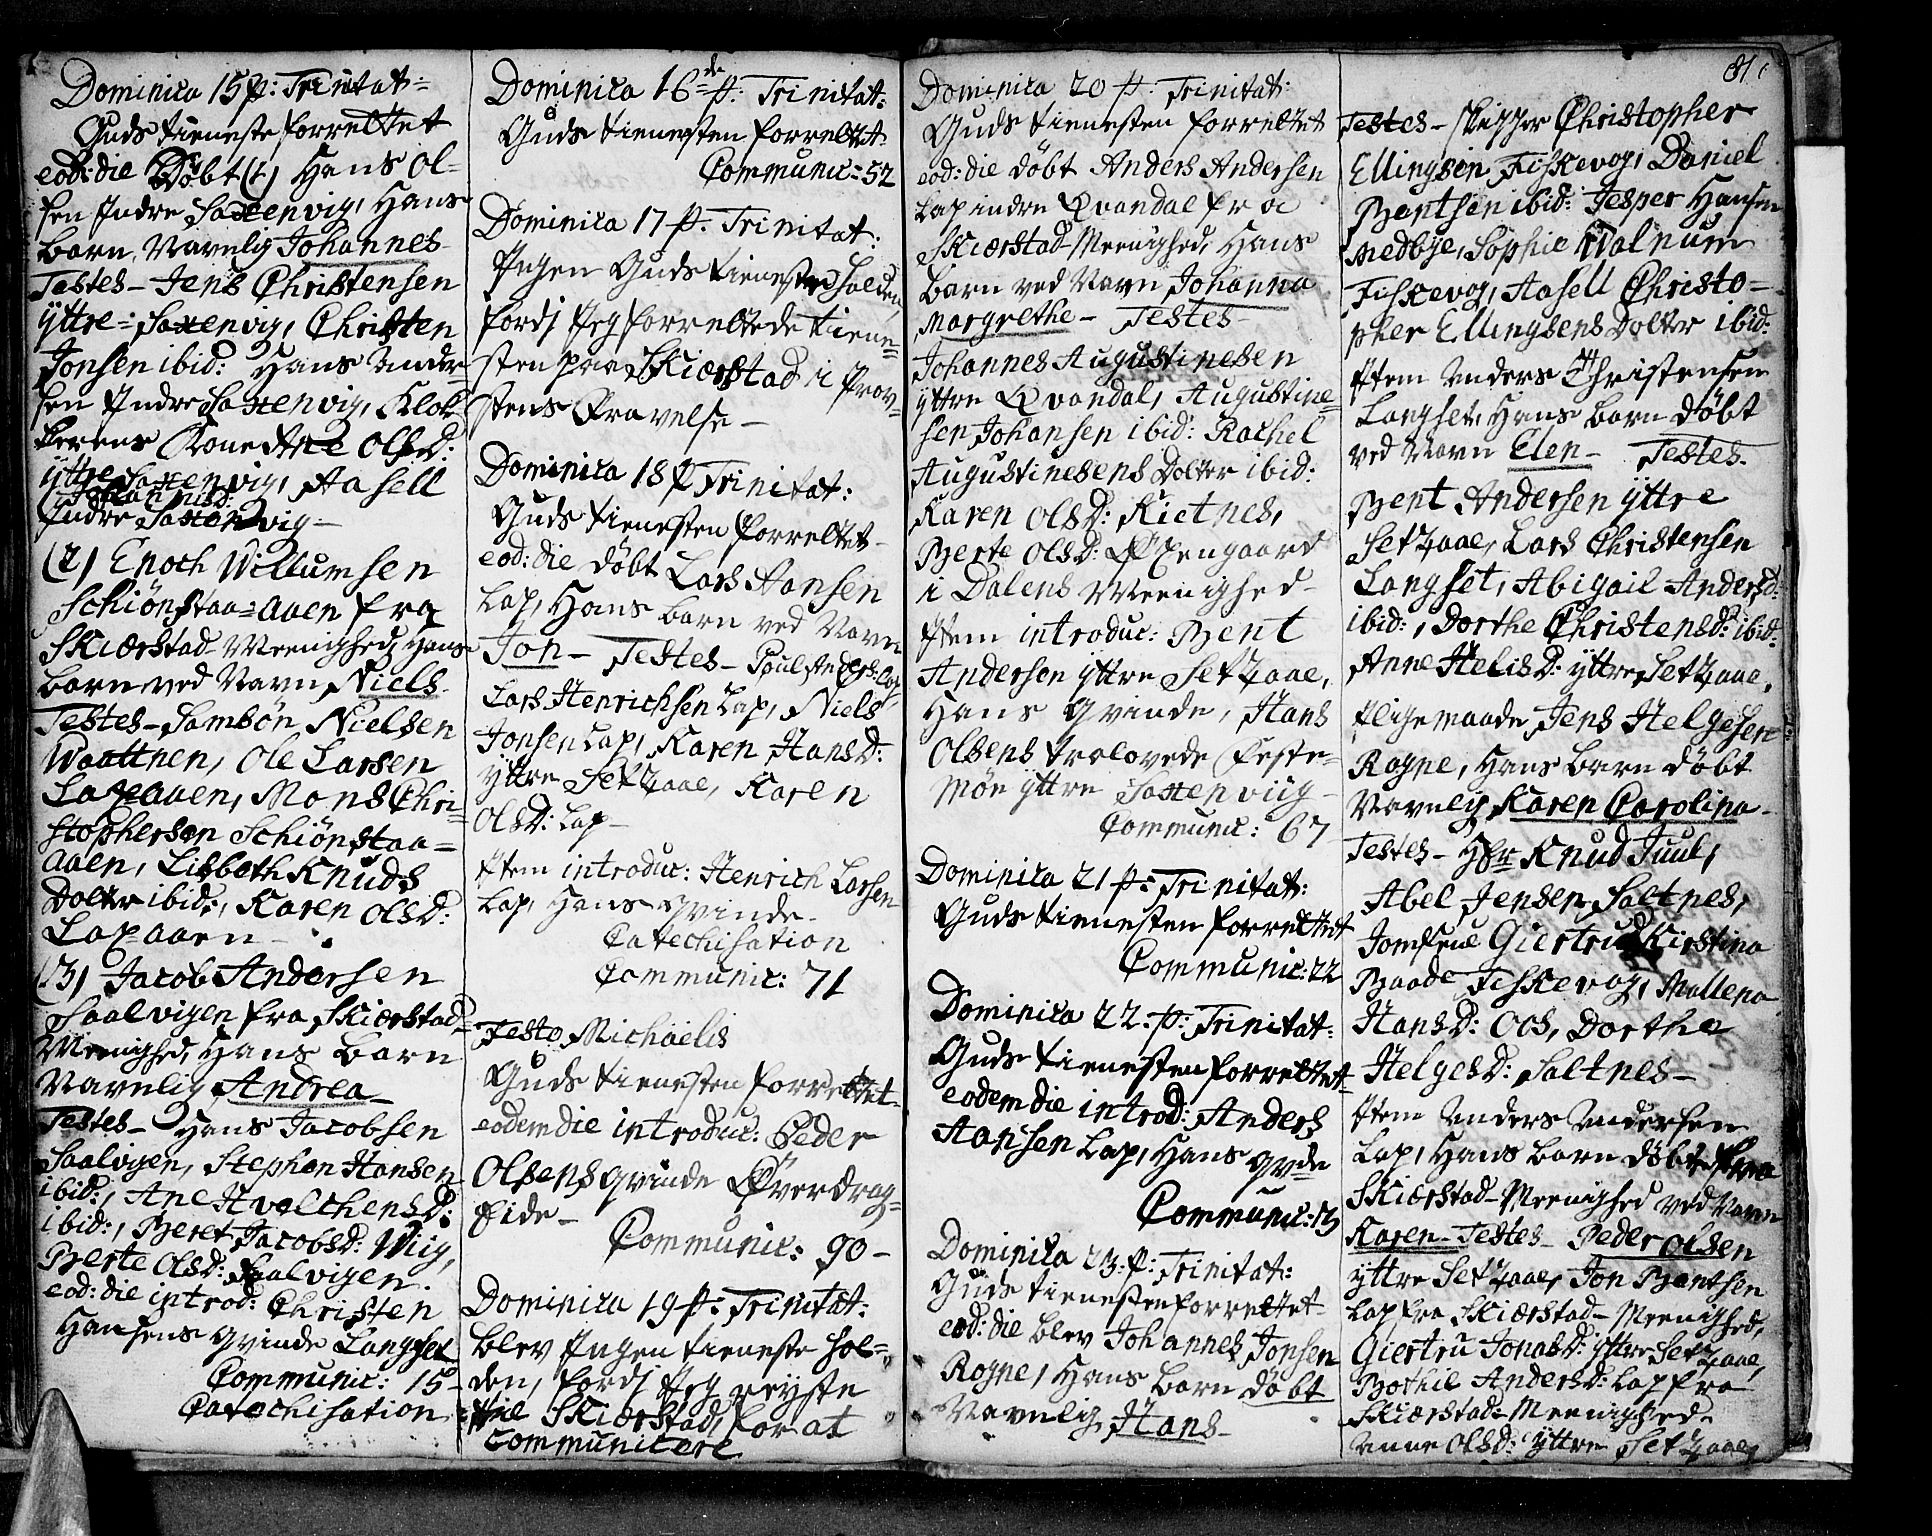 Dominica 15 p: Trinitat=
Guds tieneste forrettet
eod: die Döbt (1) Hans Ol-
sen Indre Saxenvig, Hans
barn, Navnlig Johannes
Testes- Jens Christensen
Yttre= Saxenvig, Christen
Jonsen ibid: Hans Ander-
sen Indre Saxenvig, Klok-
kerens Kone Ane Olsd:
Yttre Saxenvig, Aasell
Johannisd:
Indre Saxenvig-
(2) Enoch Willumsen
Schiönstaa=Aaen fra
Skierstad Meenighed, Hans
barn ved Navn Niels
Testes- Sambön Nielsen
Waattnen, Ole Larsen
Laxaaen, Mons Chri-
stophersen Schiönstaa-
aaen, Lisbeth Knuds
Dotter ibid:, Karen Olsd:
Laxaaen-
(3) Jacob Andersen
Saalvigen fra Skierstad
Meenighed, Hans Barn
Navnlig Andrea-
Testes- Hans Jacobsen
Saalvigen, Stephen Hansen
ibid:, Ane
ibid:, Beret Jacobsd: Wiig,
Berte Olsd: Saalvigen.
eod: die introd: Christen
Hansens Qvinde Langset
Communic: 15-
Catechisation
Dominica 16de p: Trinitat:
Guds tienesten forrettet
Communic: 52
Dominica 17 p. Trinitat:
Ingen Guds tieneste holden,
fordj Jeg forrettede tiene-
sten paa Skierstad i Prov-
stens Fravelse-
Dominica 18 p Trinitat:
Guds tienesten forrettet
eod: die döbt Lars Hansen
Lap, Hans barn ved Navn
Jon- Testes- Poul Anders: Lap,
Lars Henrichsen Lap, Niels
Jonsen Lap, Karen Hansd:
yttre Setzaae, Karen
Olsd: Lap-
Item introduc: Henrich Larsen
Lap, Hans Qvinde-
Catechisation
Communic: 71
Festo Michaelis
Guds tienesten forrettet-
eodem die introduc: Peder
Olsens Qvinde Överdrag-
Eide-
Communic: 90-
Dominica 19 p: Trinitat:
blev Ingen tieneste hol-
den, fordj Jeg reyste
til Skierstad, for at
communicere
Dominica 20 p: Trinitat:
Guds tienesten forrettet
eod: die döbt Anders Andersen
Lap indre Qvandal fra
Skierstad Meenighed, Hans
Barn ved Navn Johanna
Margrethe- Testes-
Johannes Augustinesen
Yttre Qvandal, Augustine-
sen Johansen ibid: Rachel
Augustinesens Dotter ibid:
Karen Olsd: Kietnes,
Berte Olsd: Øxengaard
i Dalens Meenighed-
Item introduc: Bent
Andersen Yttre Setzaae,
Hans Qvinde, Hans
Olsens trolovede Feste-
Möe yttre Saxenviig-
Communic: 67
Dominica 21 p: Trinitat:
Guds tienesten forrettet
Communic: 22
Dominica 22. p: Trinitat:
Guds tienesten forrettet
eodem die introd: Anders
Hansen Lap, Hans qvde
Communic: 13
Dominica 23: p: Trinitat:
Guds tienesten forrettet
eod: die blev Johannes Jonsen
Rogne, Hans barn döbt
Navnlig Hans-
81
Testes- Skipper Christopher
Ellingsen Fiskevog, Daniel
Bentsen ibid: Jesper Hansen
Nedbye, Sophie Walnum
Fiskevog, Aasell Christo-
pher Ellingsens Dotter ibid:
Item Anders Christensen
Langset, Hans barn döbt
ved Navn Elen- Testes.
Bent Andersen yttre
Setzaae, Lars Christensen
Langset, Abigail Andersd:
ibid:, Dorthe Christensd: ibid:
Anne Helisd: yttre Setzaae,
Iligemaade Jens Helgesen
Rogne, Hans Barn döbt
Navnlig Karen Carolina-
Testes- Hr Knud Juul,
Abel Jensen Saltnes,
Jomfrue Giertrud Kirstina
Baade Fiskevog, Mallena
Hansd: Oos, Dorthe
Helgesd: Saltnes-
Item Anders Andersen
Lap, Hans barn döbt fra
Skierstad-Meenighed ved Navn
Karen- Testes- Peder Olsen
yttre Setzaae, Jon Bentsen
Lap fra Skierstad-Meenighed,
Giertru Jonasd: yttre Setzaae,
Bothil Andersd: Lap fra
Skierstad-Meenighed-
Anne Olsd: Yttre Setzaae,